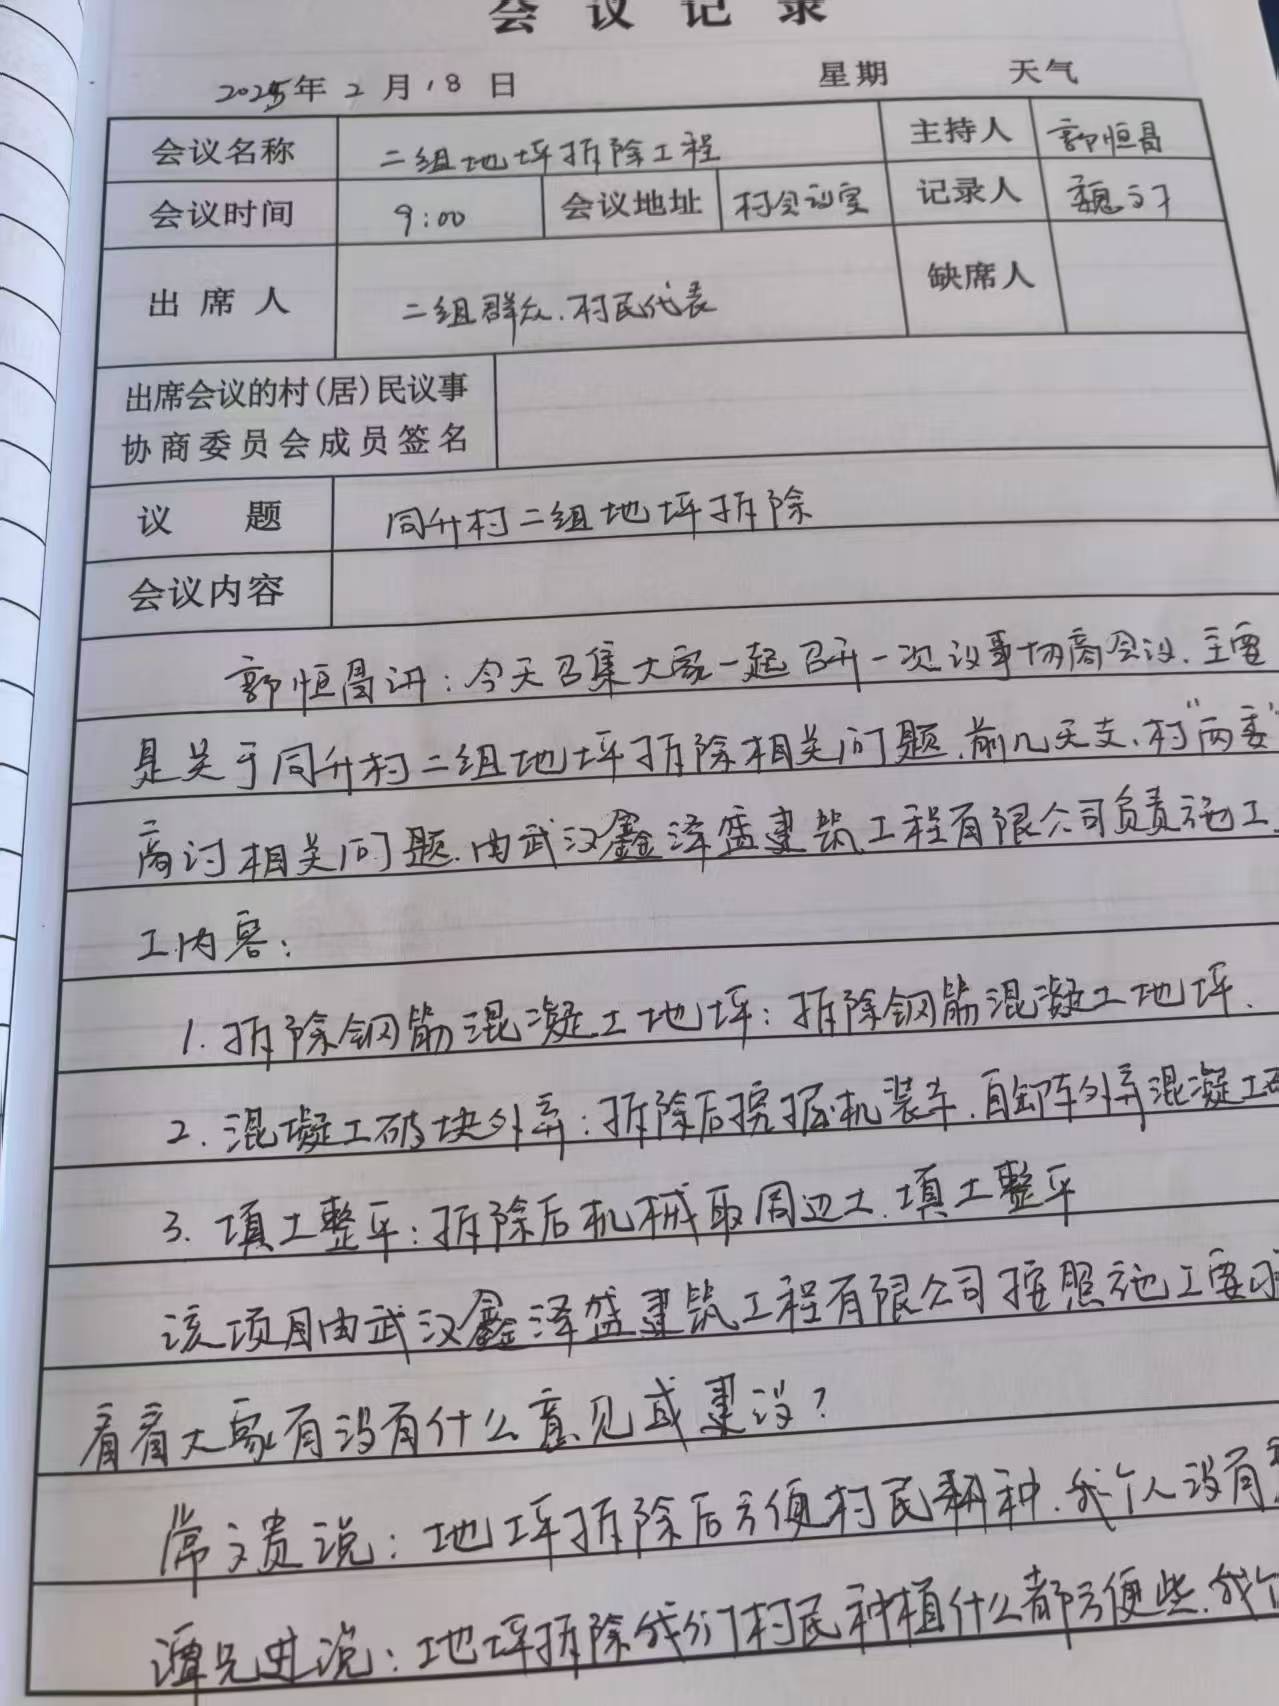 会议记录
2025年2月18日 星期 天气
会议名称 二组地坪拆除工程 主持人 郭恒昌
会议时间 9:00 会议地址 村会议室 记录人 魏
出席人 二组群众、村民代表 缺席人
出席会议的村(居)民议事
协商委员会成员签名
议题 同升村二组地坪拆除
会议内容
郭恒昌讲:今天召集大家一起召开一次议事协商会议、主要
是关于同升村二组地坪拆除相关问题、前几天支、村"两委"
商讨相关问题、由武汉鑫泽盛建筑工程有限公司负责施工、
工内容:
1.拆除钢筋混凝土地坪:拆除钢筋混凝土地坪、
2.混凝土破块外弃:拆除后挖掘机装车、自卸车外弃混凝土
3.填土整平:拆除后机械取周边土、填土整平
该项目由武汉鑫泽盛建筑工程有限公司按照施工要求
看看大家有没有什么意见或建议?
常文贵说:地坪拆除后方便村民耕种、我个人没有
谭兄进说:地坪拆除我们村民种植什么都方便些、我个